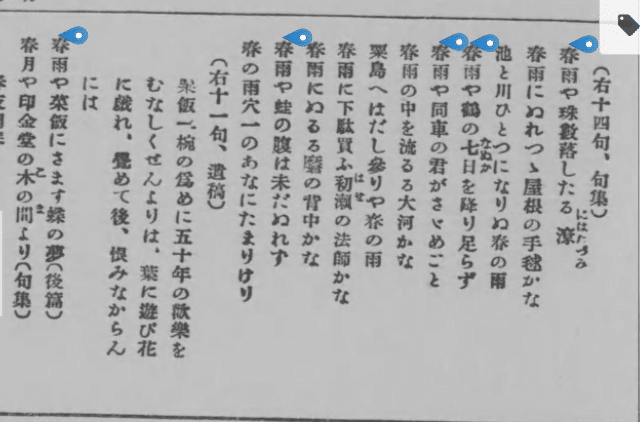 (右十四句、句集)
春雨や珠數落したる潦
にはたづみ
春雨にぬれつゝ屋根の手毬かな
池と川ひとつになりぬ春の雨
春雨や鶴の七日を降り足らず
なぬか
春雨や同車の君がさゞめごと
春雨の中を流るる大河かな
粟島へはだし參りや春の雨
春雨に下駄買ふ初瀬の法師かな
はせ
春雨にぬるるの背中かな
春雨や蛙の腹は未だぬれず
春の雨穴一のあなにたまりけり
(右十一句、遺稿)
飯一椀の爲めに五十年の歡樂を
むなしくせんよりは、葉に遊び花
に戯れ、覺めて後、恨みなからん
には
春雨や菜飯にさます蝶の夢(後篇)
春月や印金堂の木の間より(句集)
こま